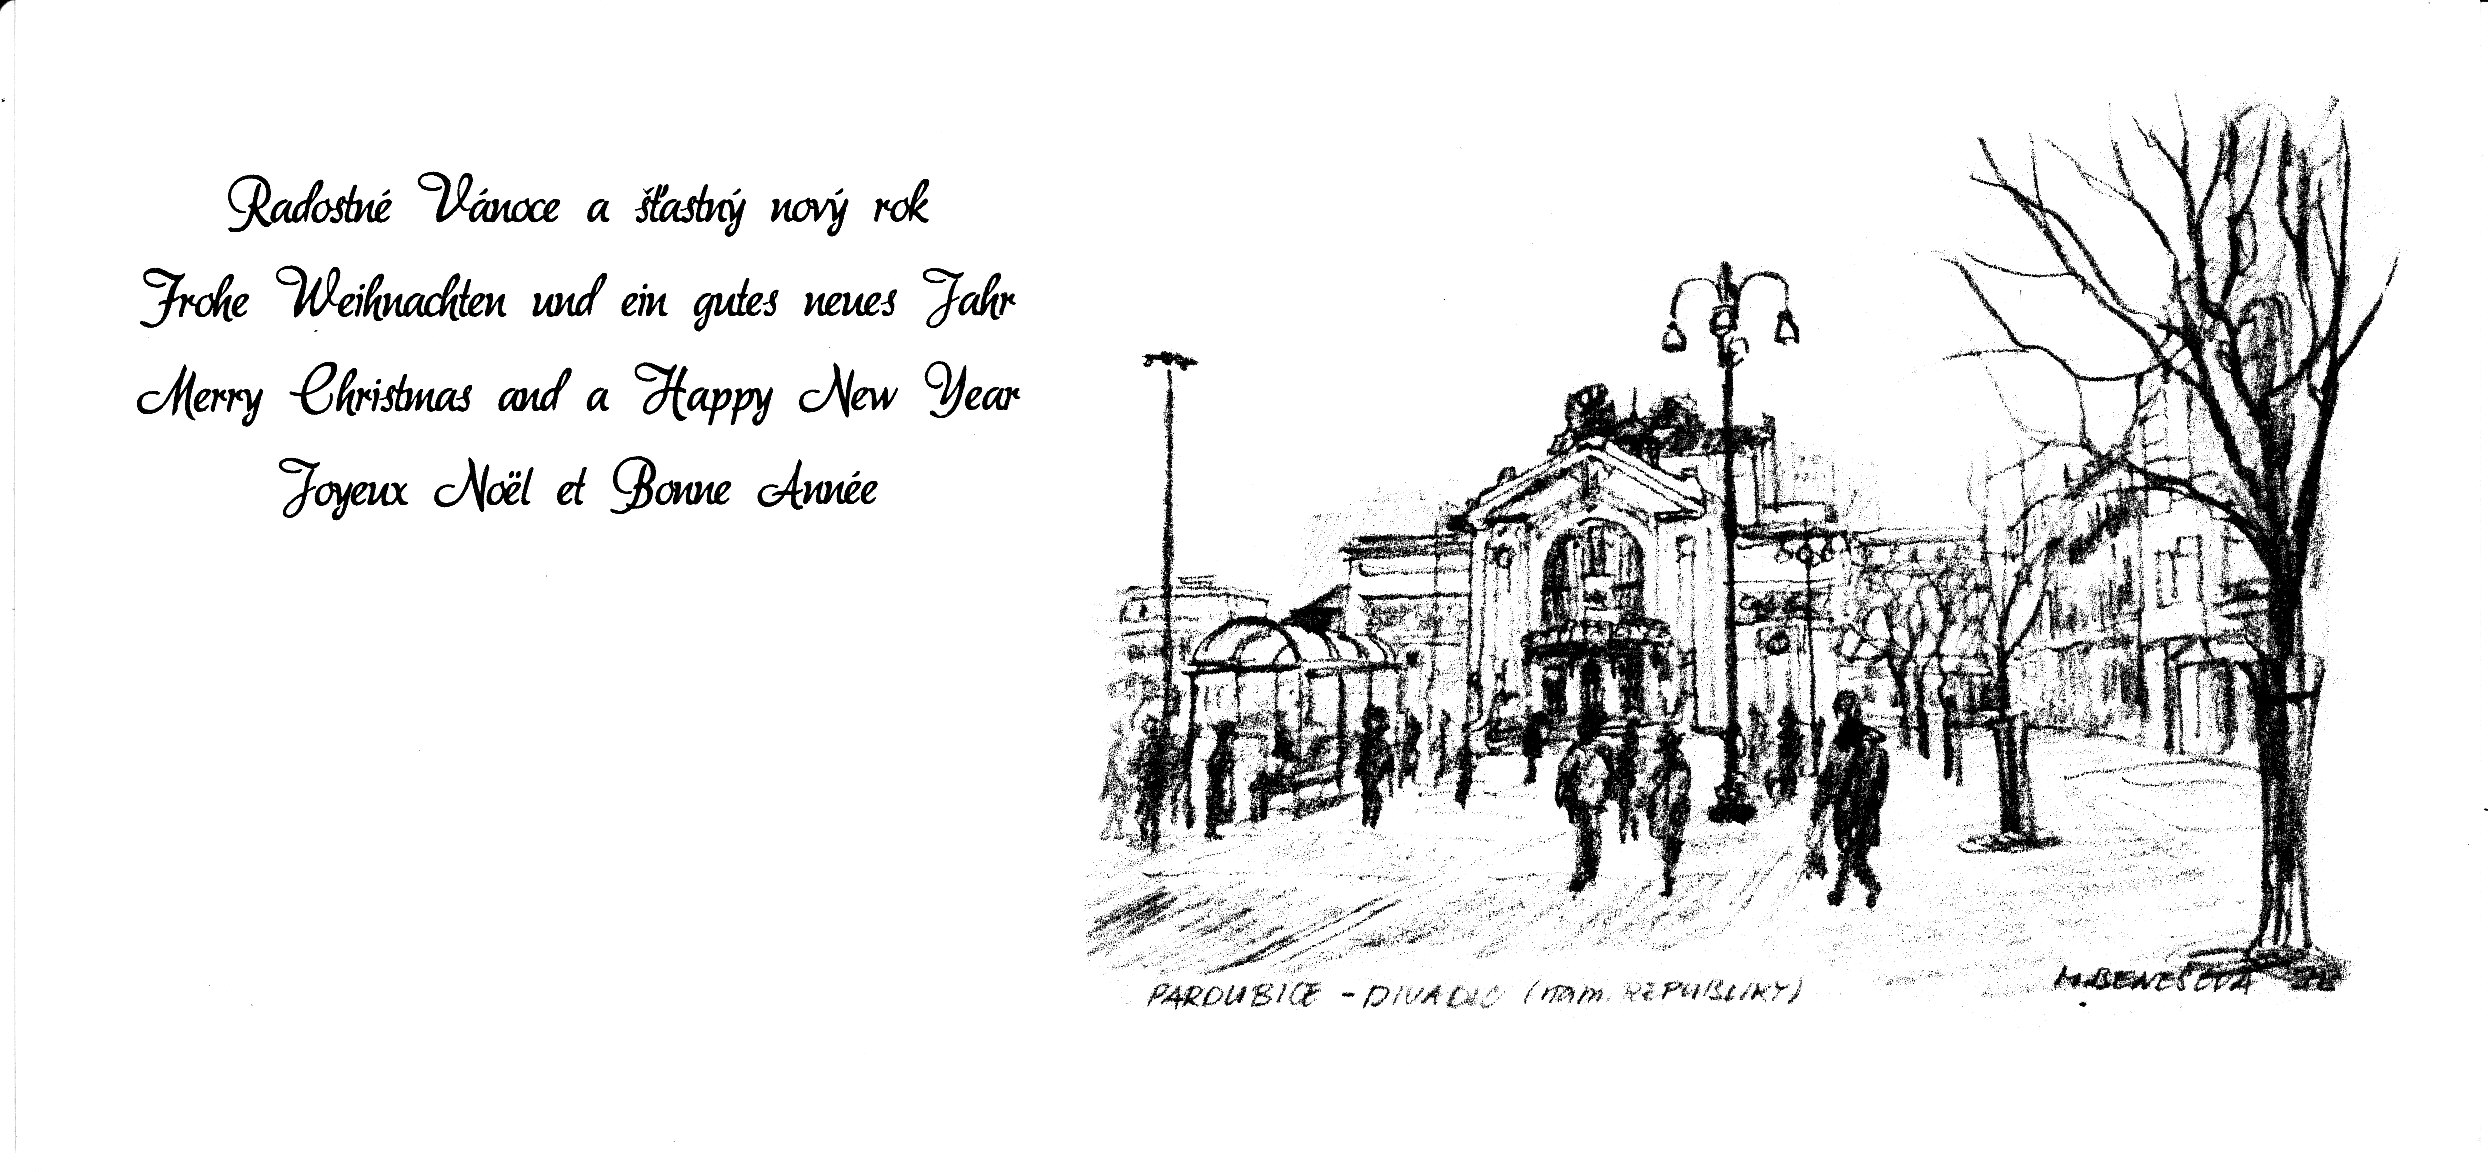 Radostné Vánoce a šťastný nový rok
Frohe Weihnachten und ein gutes neues Jahr
Merry Christmas and a Happy New Year
Joyeux Noël et Bonne Année
PARDUBICE - DIVADLO (nám. REPUBLIKY)
M. BENEŠOVÁ